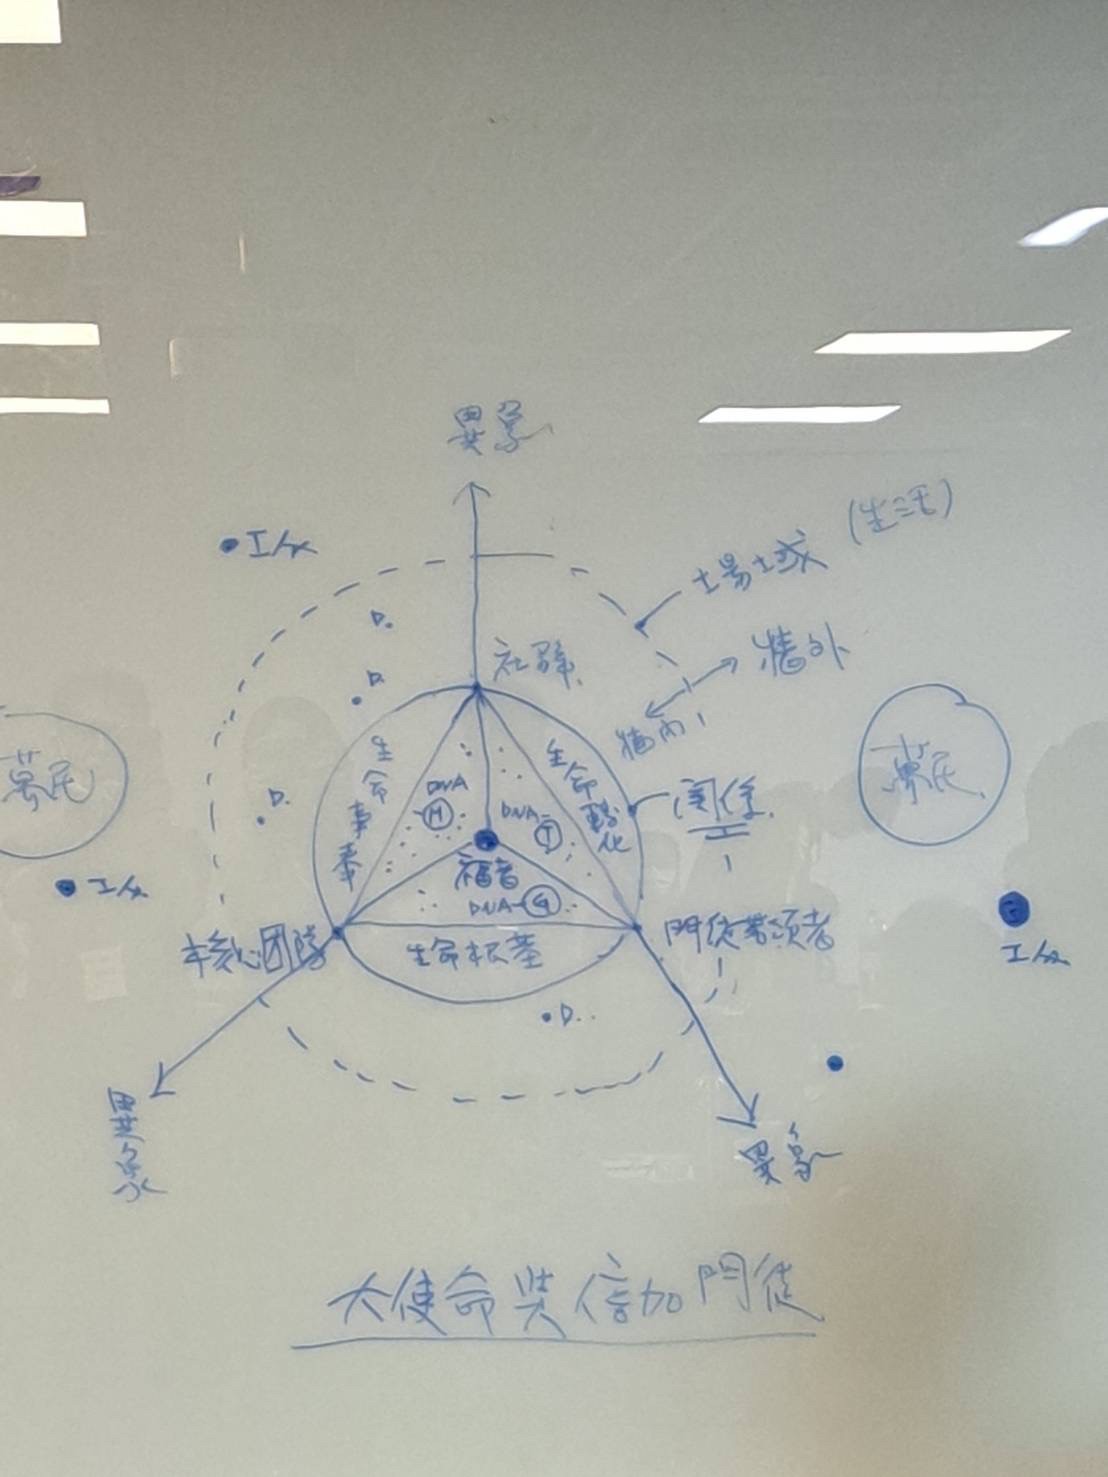 異象
(生活)
場域
工人
D.
社群.
牆外
D.
牆內
生命
生命
萬民
DNA
Ⓗ
DNA-Ⓣ
關係.
萬民.
D.
福音
工人
DNA-Ⓖ
核心團隊
生命根基
門徒帶領者
工人
D..
異象
異象
大使命與倍加門徒